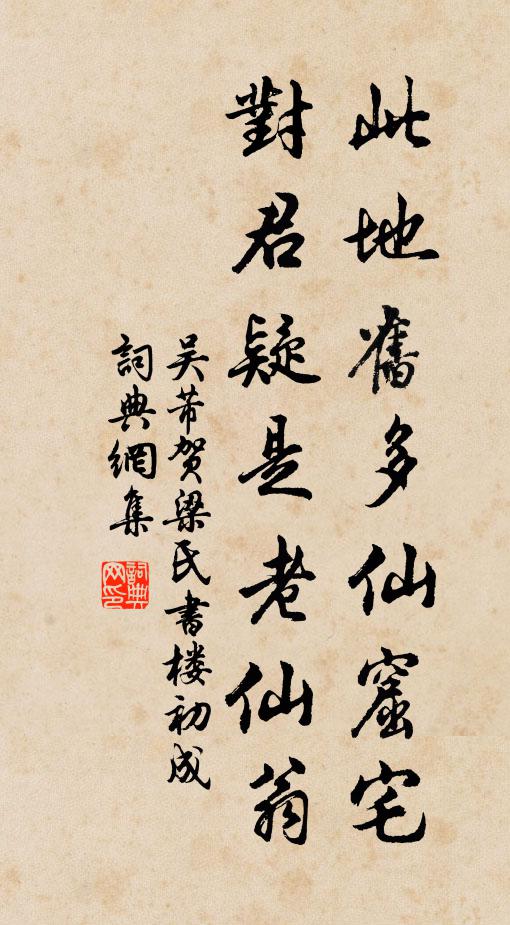 此地舊多仙窟宅
對君疑是老仙翁
吴芾賀梁氏書楼初成
詞典網集
詞典网印